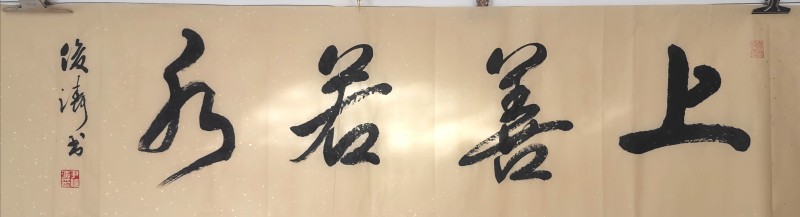 上善若水
俊涛书